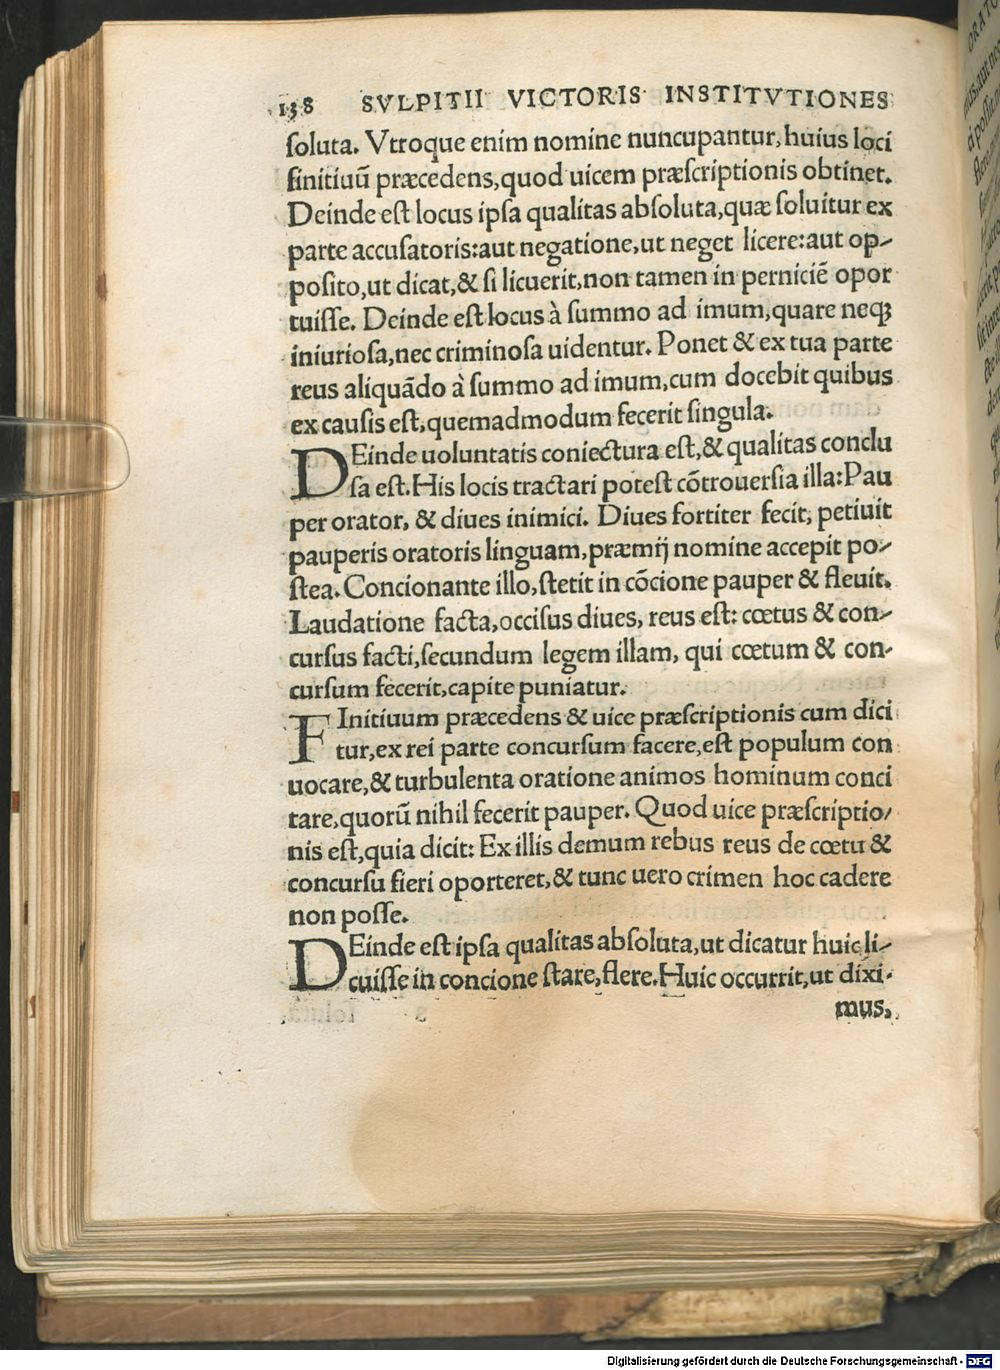 138 SVLPITII VICTORIS INSTITVTIONES
ſoluta. Vtroque enim nomine nuncupantur, huius loci
finitiuū præcedens, quod uicem præſcriptionis obtinet.
Deinde eſt locus ipſa qualitas abſoluta, quæ ſoluitur ex
parte accuſatoris: aut negatione, ut neget licere: aut op-
poſito, ut dicat, & ſi licuerit, non tamen in perniciē opor
tuiſſe. Deinde eſt locus à ſummo ad imum, quare neqꝫ
iniurioſa, nec criminoſa uidentur. Ponet & ex tua parte
reus aliquādo à ſummo ad imum, cum docebit quibus
ex cauſis eſt, quemadmodum fecerit ſingula.
DEinde uoluntatis coniectura eſt, & qualitas conclu
ſa eſt. His locis tractari poteſt cōtrouerſia illa: Pau
per orator, & diues inimici. Diues fortiter fecit, petiuit
pauperis oratoris linguam, præmij nomine accepit po-
ſtea. Concionante illo, ſtetit in cōcione pauper & fleuit.
Laudatione facta, occiſus diues, reus eſt: cœtus & con-
curſus facti, ſecundum legem illam, qui cœtum & con-
curſum fecerit, capite puniatur.
FInitiuum præcedens & uice præſcriptionis cum dici
tur, ex rei parte concurſum facere, eſt populum con
uocare, & turbulenta oratione animos hominum conci
tare, quorū nihil fecerit pauper. Quod uice præſcriptio-
nis eſt, quia dicit: Ex illis demum rebus reus de cœtu &
concurſu fieri oporteret, & tunc uero crimen hoc cadere
non poſſe.
DEinde eſt ipſa qualitas abſoluta, ut dicatur huic li-
cuiſſe in concione ſtare, flere. Huic occurrit, ut dixi-
mus,
Digitalisierung gefördert durch die Deutsche Forschungsgemeinschaft - DFG